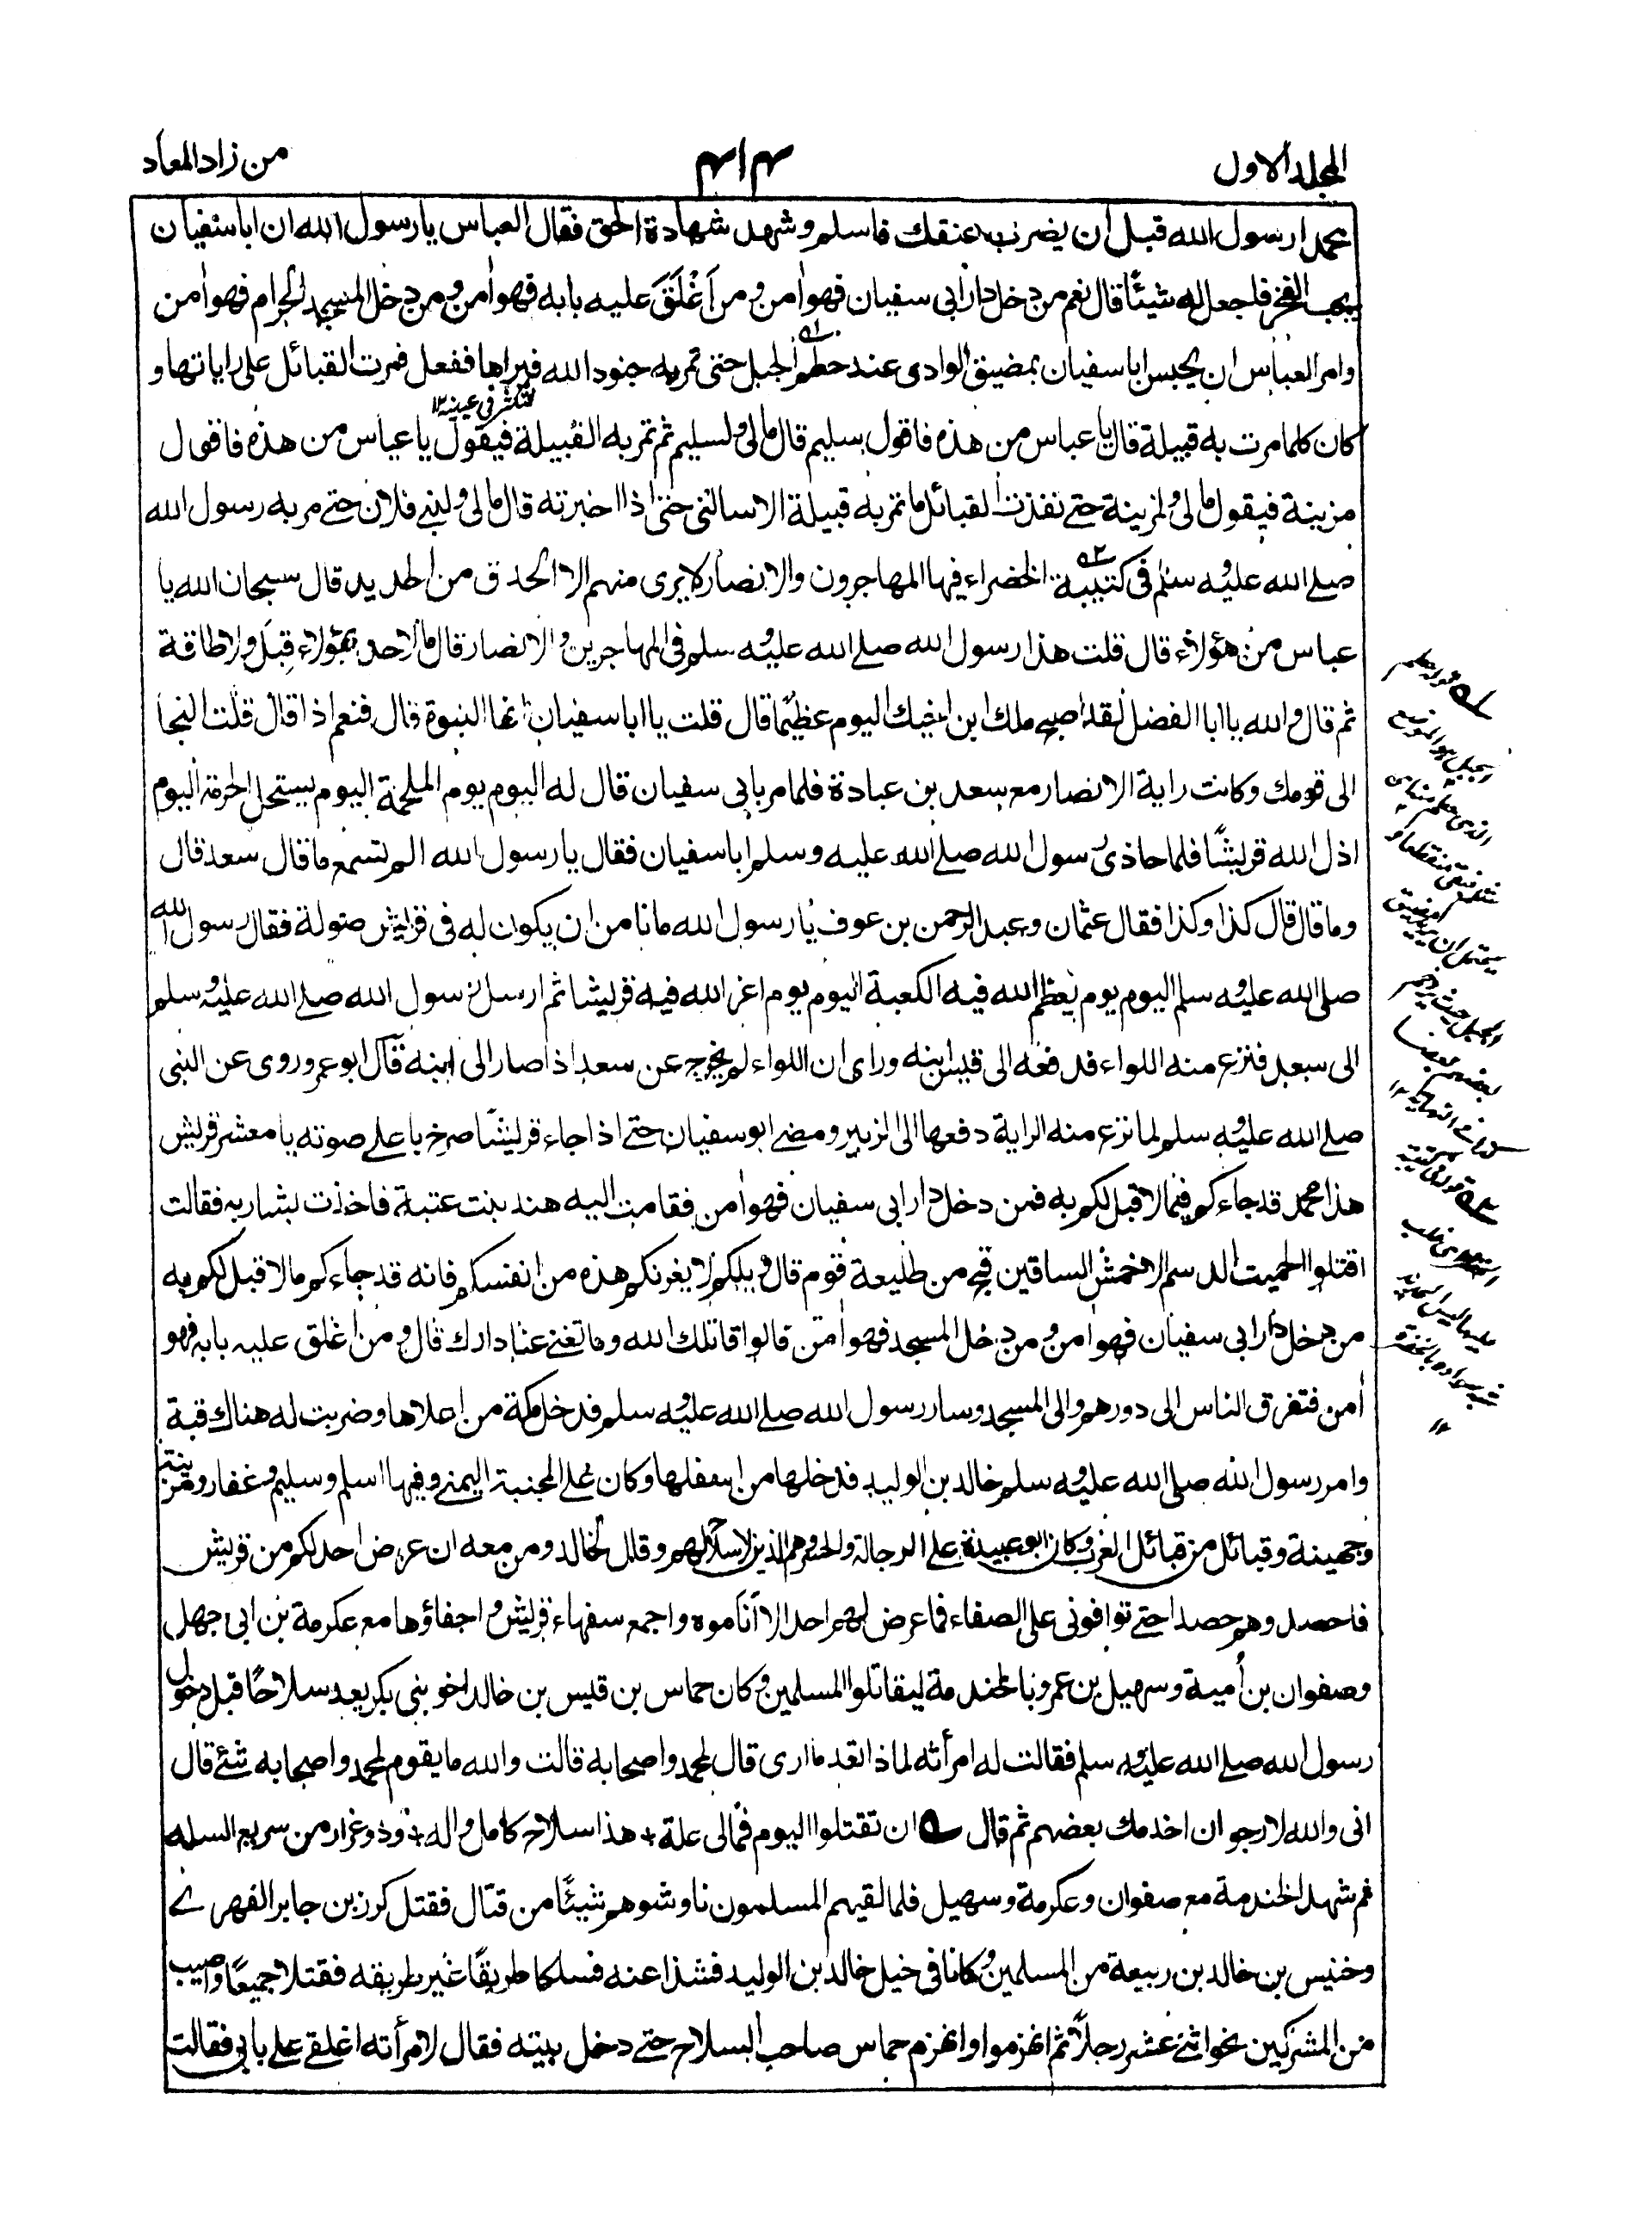 المجلد الاول
۴۱۴
من زاد المعاد
محمدا رسول الله قبل ان يضرب عنقك فاسلم وشهد شهادة الحق فقال العباس يا رسول الله ان ابا سفيان
يحب الفخر فاجعل له شيئًا قال نعم من دخل دار ابى سفيان فهو اٰمن ومن اَغْلَقَ عليه بابه فهو اٰمن ومن دخل المسجد الحرام فهو اٰمن
وامر العباس ان يحبس ابا سفيان بمضيق الوادى عند خطم الجبل حتى تمر به جنود الله فيراها ففعل فمرت القبائل على راياتها و
لتكثر فى عينيه ۱۲
كان كلما مرت به قبيلة قال يا عباس من هذه فاقول سليم قال مالى ولسليم ثم تمر به القبيلة فيقول يا عباس من هذه فاقول
مزينة فيقول مالى ولمزينة حتے نفذت القبائل ما تمر به قبيلة الا سالنى حتى اذا اخبرته قال مالى ولبنے فلان حتے مر به رسول الله
صلے الله عليه وسلم فى كتيبة الخضراء فيها المهاجرون والانصار لا يرى منهم الا الحدق من الحديد قال سبحان الله يا
عباس من هؤلاء قال قلت هذا رسول الله صلے الله عليه وسلم فى المهاجرين والانصار قال ما لاحد بهؤلاء قِبَل ولا طاقة
ثم قال والله يا ابا الفضل لقد اصبح ملك ابن اخيك اليوم عظيمًا قال قلت يا ابا سفيان انها النبوة قال فنعم اذا قال قلت النجا
الى قومك وكانت راية الانصار مع سعد بن عبادة فلما مر بابى سفيان قال له اليوم يوم الملحمة اليوم يستحل الحرمة اليوم
اذل الله قريشًا فلما حاذى رسول الله صلے الله عليه وسلم ابا سفيان فقال يا رسول الله الم تسمع ما قال سعد قال
وما قال قال كذا وكذا فقال عثمان وعبد الرحمن بن عوف يا رسول الله مانامن ان يكون له فى قريش صولة فقال رسول الله
صلى الله عليه وسلم اليوم يوم يعظم الله فيه الكعبة اليوم يوم اعز الله فيه قريشا ثم ارسل رسول الله صلے الله عليه وسلم
الى سعد فنزع منه اللواء فدفعه الى قيس ابنه وراى ان اللواء لم يخرج عن سعد اذا صار الى ابنه قال ابو عمر وروى عن النبى
صلے الله عليه وسلم لما نزع منه الراية دفعها الى الزبير ومضے ابو سفيان حتے اذا جاء قريشًا صرخ باعلے صوته يا معشر قريش
هذا محمد قد جاءكم فيما لا قبل لكم به فمن دخل دار ابى سفيان فهو اٰمن فقامت اليه هند بنت عتبة فاخذت بشاربه فقالت
اقتلوا الحميت الدسم الاخمش الساقين قبح من طليعة قوم قال ويلكم لا يغرنكم هذه من انفسكم فانه قد جاءكم ما لا قبل لكم به
من دخل دار ابى سفيان فهو اٰمن ومن دخل المسجد فهو اٰمن قالوا قاتلك الله وما تغنے عنا دارك قال ومن اغلق عليه بابه فهو
اٰمن فتفرق الناس الى دورهم والى المسجد وسار رسول الله صلے الله عليه وسلم فدخل مكة من اعلاها وضربت له هناك قبة
وامر رسول الله صلى الله عليه وسلم خالد بن الوليد فدخلها من اسفلها وكان على المجنبة اليمنے وفيها اسلم وسليم وغفار ومزينة
وجهينة وقبائل من قبائل العرب وكان ابو عبيدة علے الرجالة والحسر وهم الذين لا سلاح لهم وقال لخالد ومن معه ان عرض احد لكم من قريش
فاحصدوهم حصدا حتے توافونى على الصفاء فما عرض لهم احد الا اناموه واجمع سفهاء قريش واجفاؤها مع عكرمة بن ابى جهل
وصفوان بن اُمية وسهيل بن عمرو بالخندمة ليقاتلوا المسلمين وكان حماس بن قيس بن خالد اخو بنى بكر يعد سلاحًا قبل دخول
رسول الله صلے الله عليه وسلم فقالت له امرأته لماذا تعد ما ارى قال لمحمد واصحابه قالت والله ما يقوم لمحمد واصحابه شئے قال
انى والله لارجو ان اخدمك بعضهم ثم قال ؎ ان تقتلوا اليوم فمالى علة + هذا سلاح كامل واله + وذو غرار من سريع السله
ثم شهد الخندمة مع صفوان وعكرمة وسهيل فلما لقيهم المسلمون ناوشوهم شيئًا من قتال فقتل كرز بن جابر الفهرے
وخنيس بن خالد بن ربيعة من المسلمين وكانا فى خيل خالد بن الوليد فشذا عنه فسلكا طريقًا غير طريقه فقتلا جميعًا واصيب
من المشركين نحو اثنے عشر رجلاً ثم انهزموا وانهزم حماس صاحب السلاح حتے دخل بيته فقال لامرأته اغلقے علے بابى فقالت